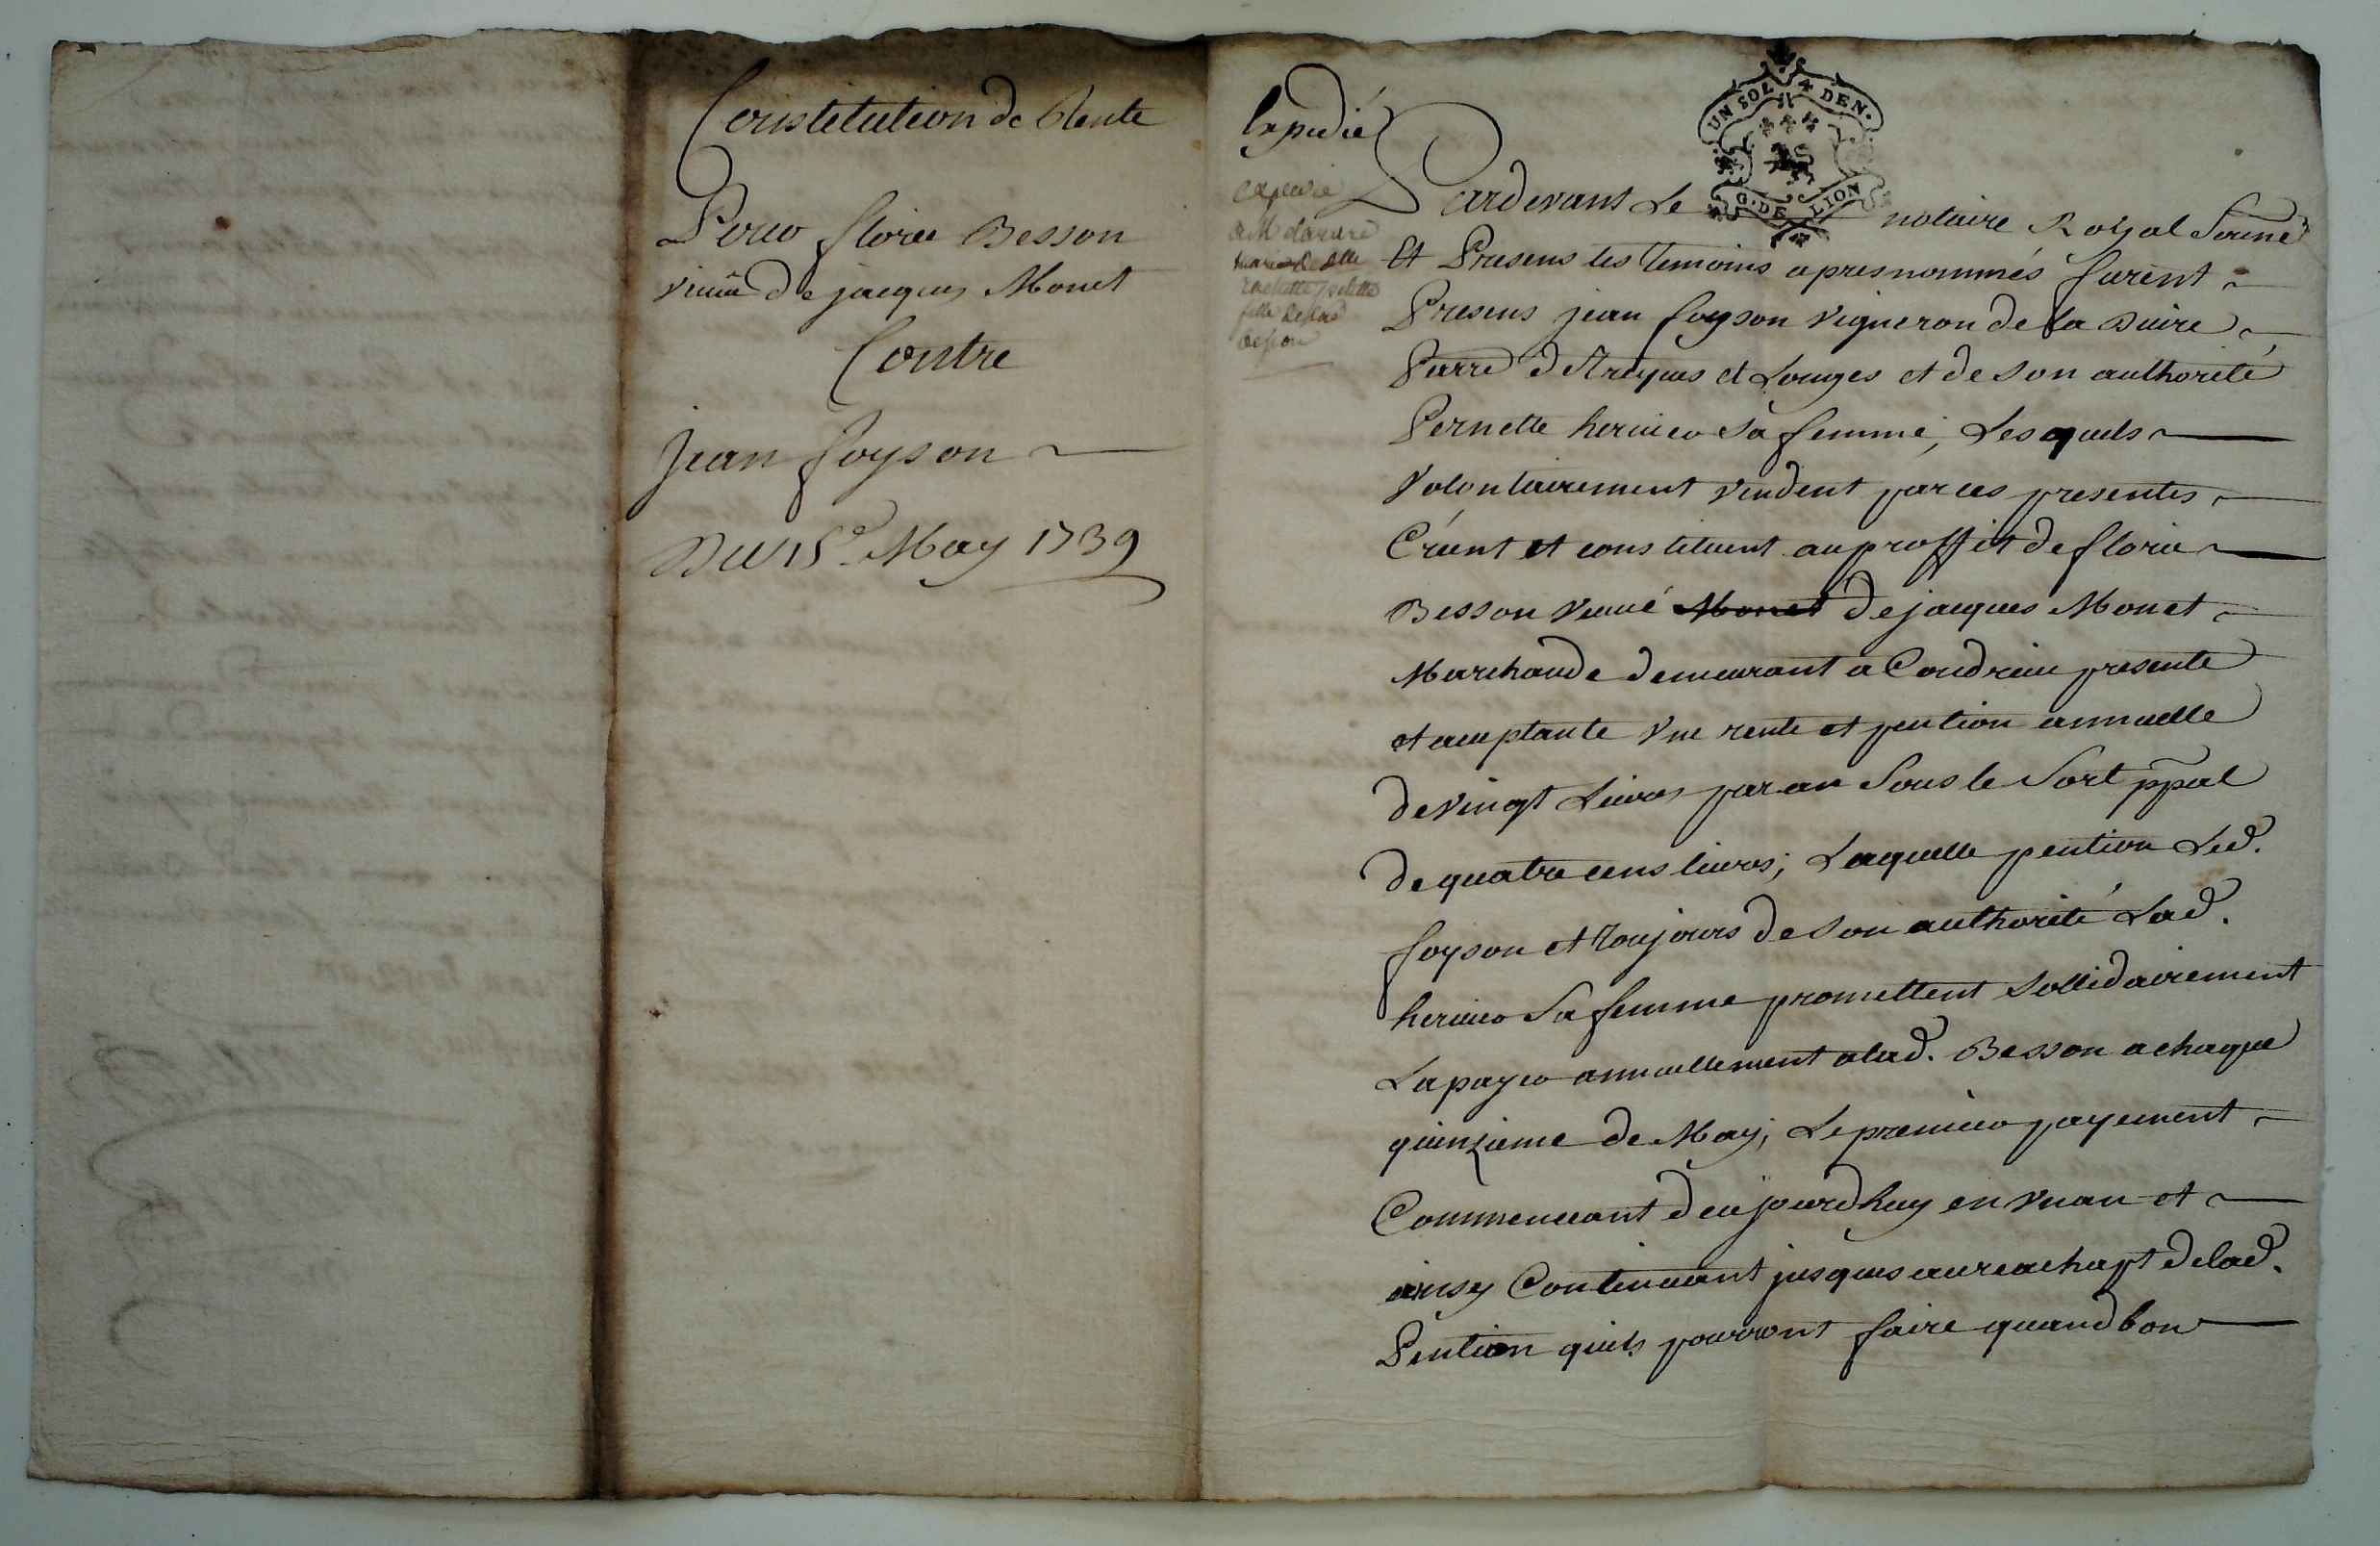 Constitution de Rente
Pour florie Besson
veuve de jacques Monet
Contre
jean foyson
Du 15e May 1739
Expedié
expedié
a M
fille de lad
besson
UN SOL 4 DEN.
G. DE LION
Pardevant Le notaire Royal Soussigné
Et Presens les temoins apres nommés furent
Presens jean foyson vigneron de la
Parr. de et Longes et de son authorité
Pernette herieu sa femme, Lesquels
Volontairement vendent par ces presentes
Créent et constituent au proffit de florie
Besson veuve Monet de jacques Monet
Marchande demeurant a Condrieu presente
et acceptante Une rente et pention annuelle
de vingt Livres par an Sous le Sort ppal
de quatre cens livres; Laquelle pention Led.
foyson et toujours de son authorité Lad.
herieu Sa femme promettent sollidairement
La payer annuellement a lad. Besson a chaque
quinzieme de May; Le premier payement
Commencant daujourdhuy en Un an et
ainsy Continuant jusques au reachapt de lad.
Pention quils pourront faire quand bon